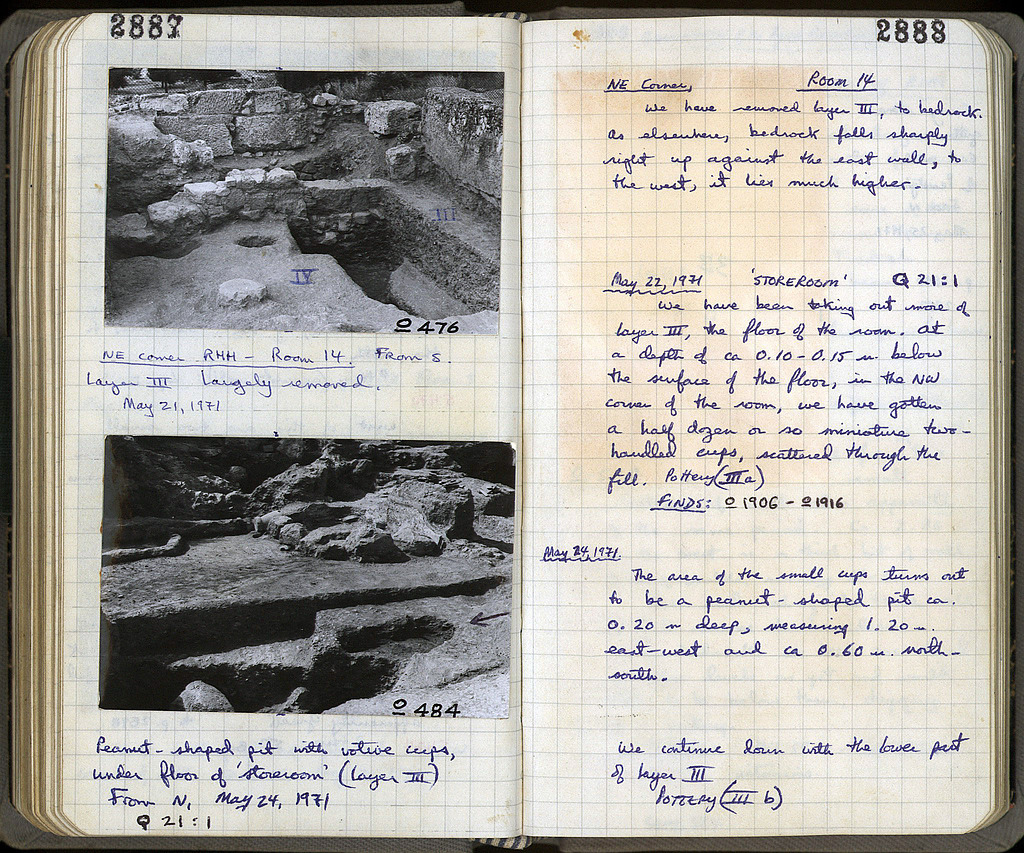 2887
III
IV
O 476
NE corner RHH - Room 14. From S.
Layer III Largely removed.
May 21, 1971
O 484
Peanut-shaped pit with votive cups,
under floor of 'storeroom' (Layer III)
From N, May 24, 1971
Q 21:1
2888
NE Corner, Room 14
We have removed layer III, to bedrock.
As elsewhere, bedrock falls sharply
right up against the east wall, to
the west, it lies much higher.
May 22, 1971 'STOREROOM' Q 21:1
We have been taking out more of
layer III, the floor of the room. At
a depth of ca 0.10-0.15 m. below
the surface of the floor, in the NW
corner of the room, we have gotten
a half dozen or so miniature two-
handled cups, scattered through the
fill. Pottery (III a)
FINDS: O 1906 - O 1916
May 24, 1971.
The area of the small cups turns out
to be a peanut-shaped pit ca.
0.20 m deep, measuring 1.20 m.
east-west and ca 0.60 m. north-
south.
We continue down with the lower part
of layer III
POTTERY (III b)